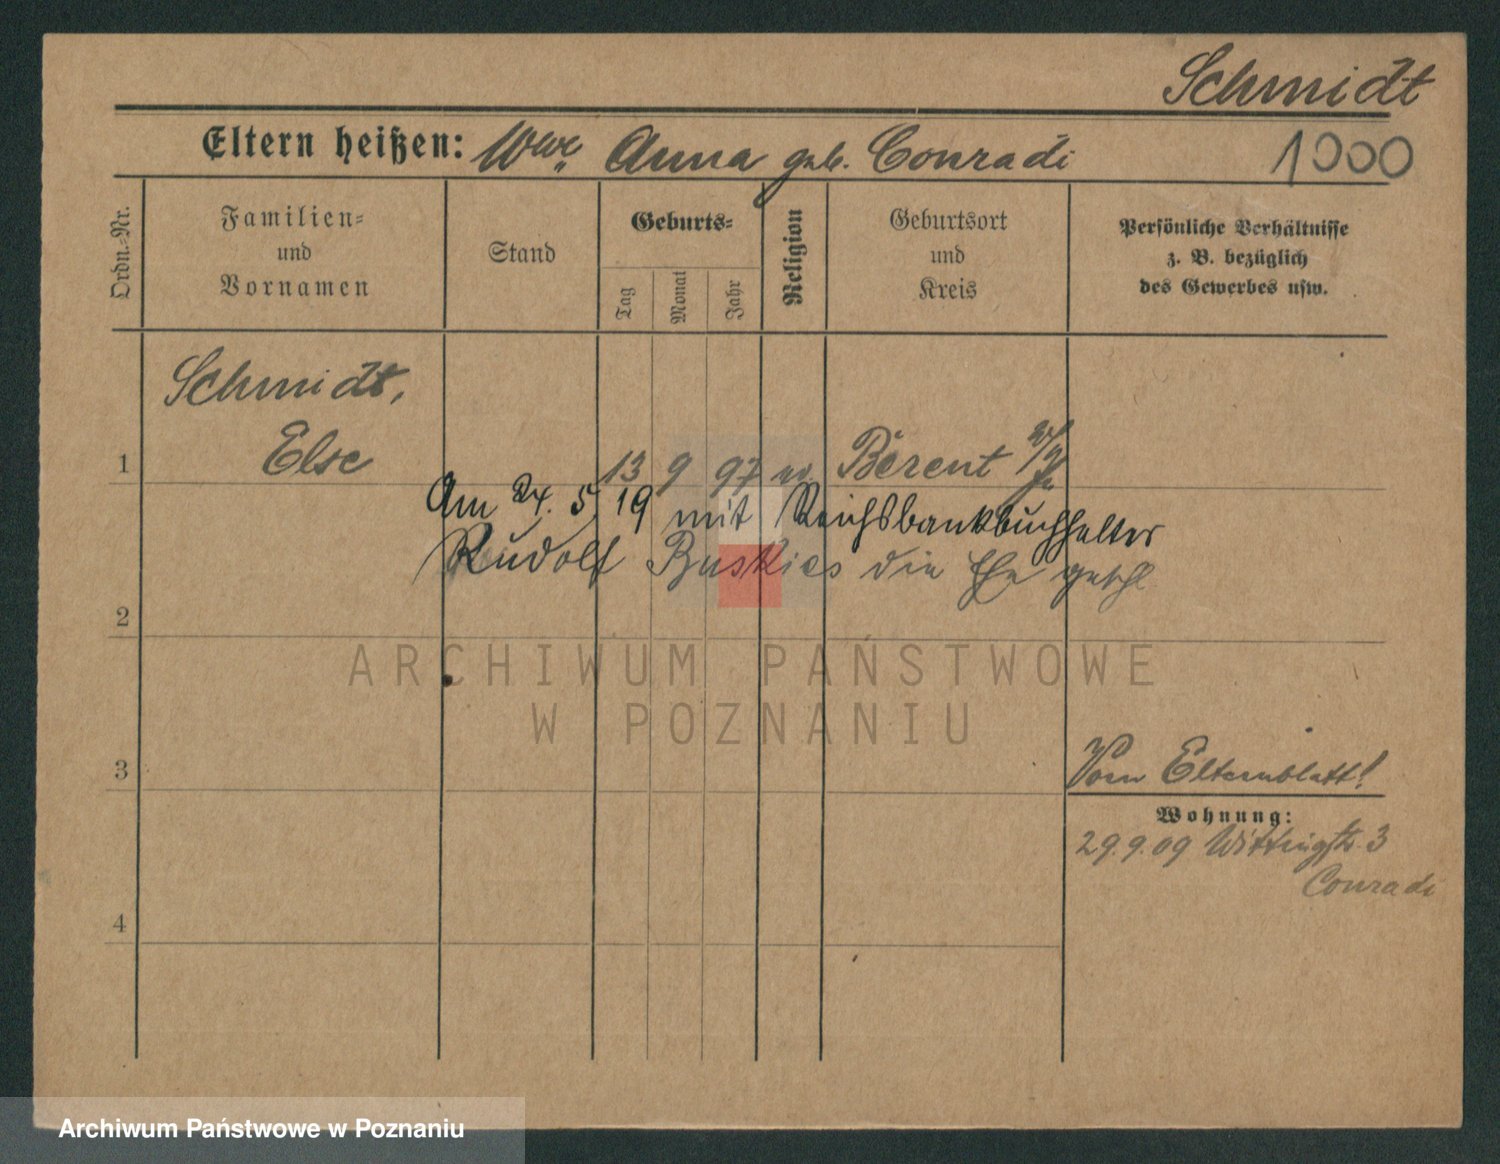 Schmidt
Eltern heißen: Wwe. Anna geb. Conradi
1000
Ordn.-Nr.
Familien-
und
Vornamen
Stand
Geburts-
Tag
Monat
Jahr
Religion
Geburtsort
und
Kreis
Persönliche Verhältnisse
z. B. bezüglich
des Gewerbes usw.
Schmidt,
1 Else 13 9 97 ev. Berent W/Pr.
Am 24. 5. 19 mit Reichsbankbuchhalter
Rudolf Buskies die Ehe geschl
2
ARCHIWUM PAŃSTWOWE
W POZNANIU
3
Vom Elternblatt!
Wohnung:
29.9.09 Wittingstr. 3
Conradi
4
Archiwum Państwowe w Poznaniu